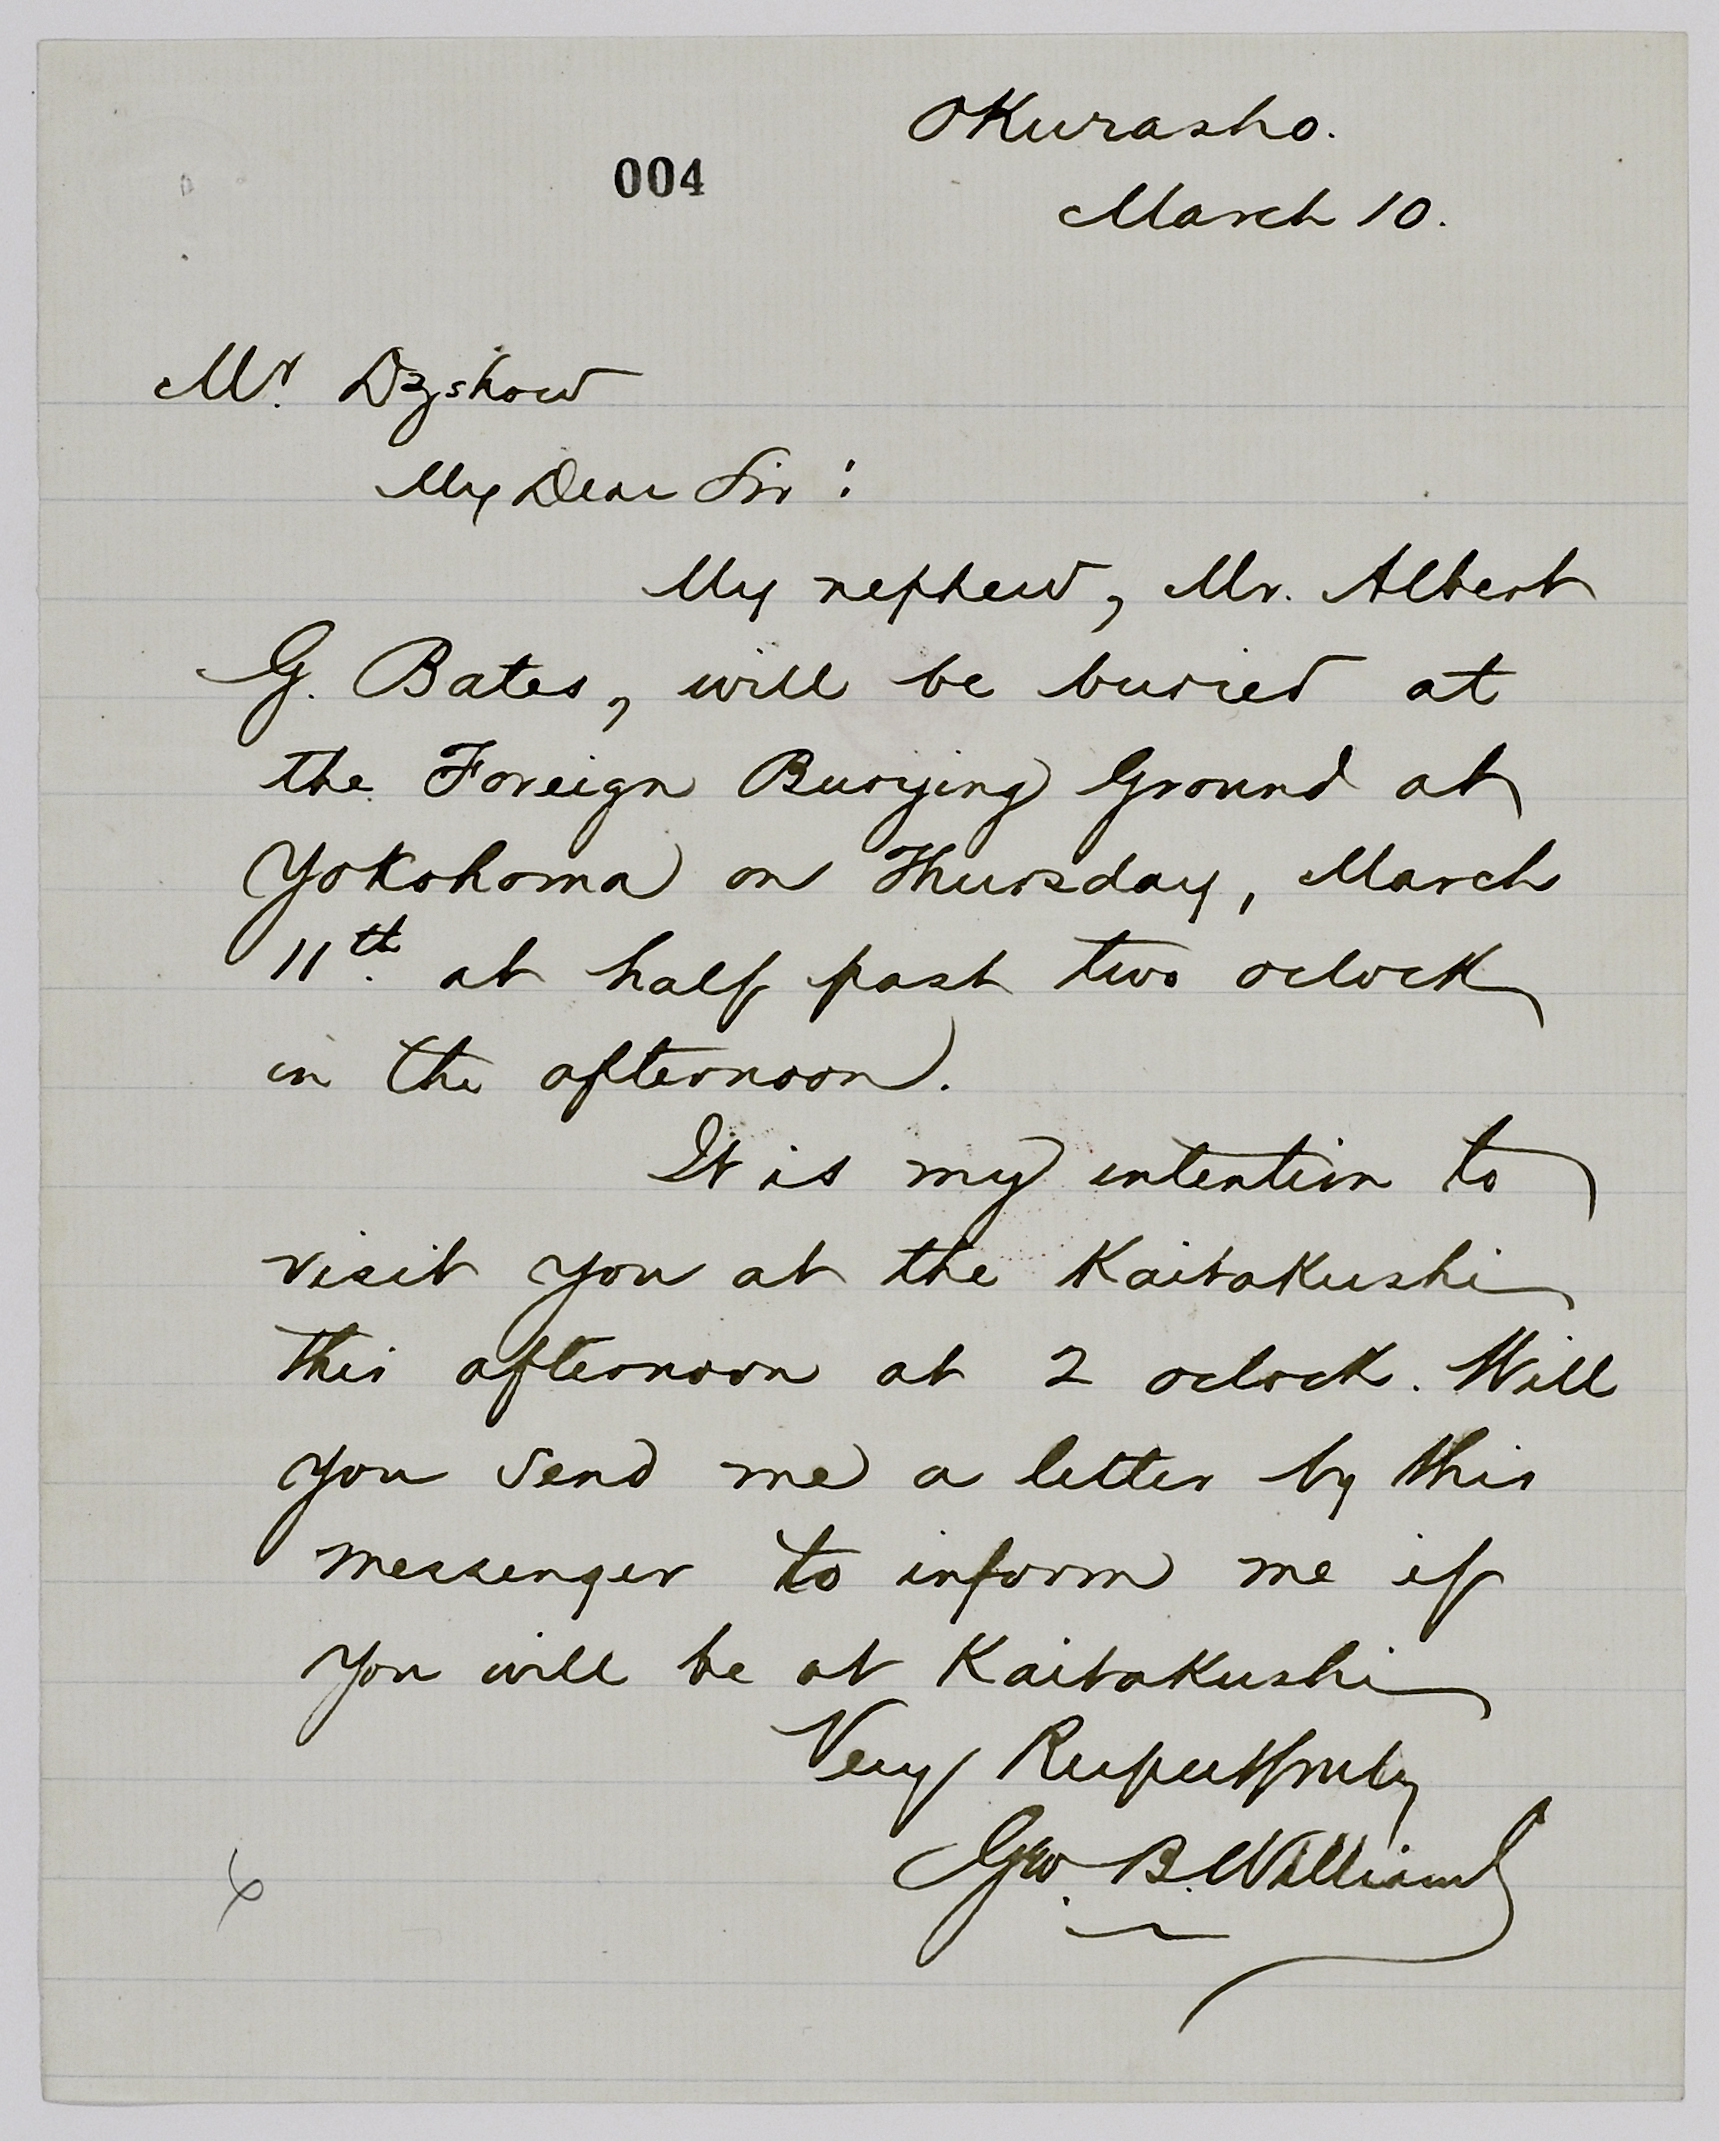 OKurasho.
004
March 10.
Mr. Dzshow
My Dear Sir:
My nephew, Mr. Albert
G. Bates, will be buried at
the Foreign Burying Ground at
Yokohama on Thursday, March
11th. at half past two oclock
in the afternoon.
It is my intention to
visit you at the Kaitakushi
this afternoon at 2 oclock. Will
you send me a letter by this
messenger to inform me if
you will be at Kaitakushi
Very Respectfully
Geo. B. Williams